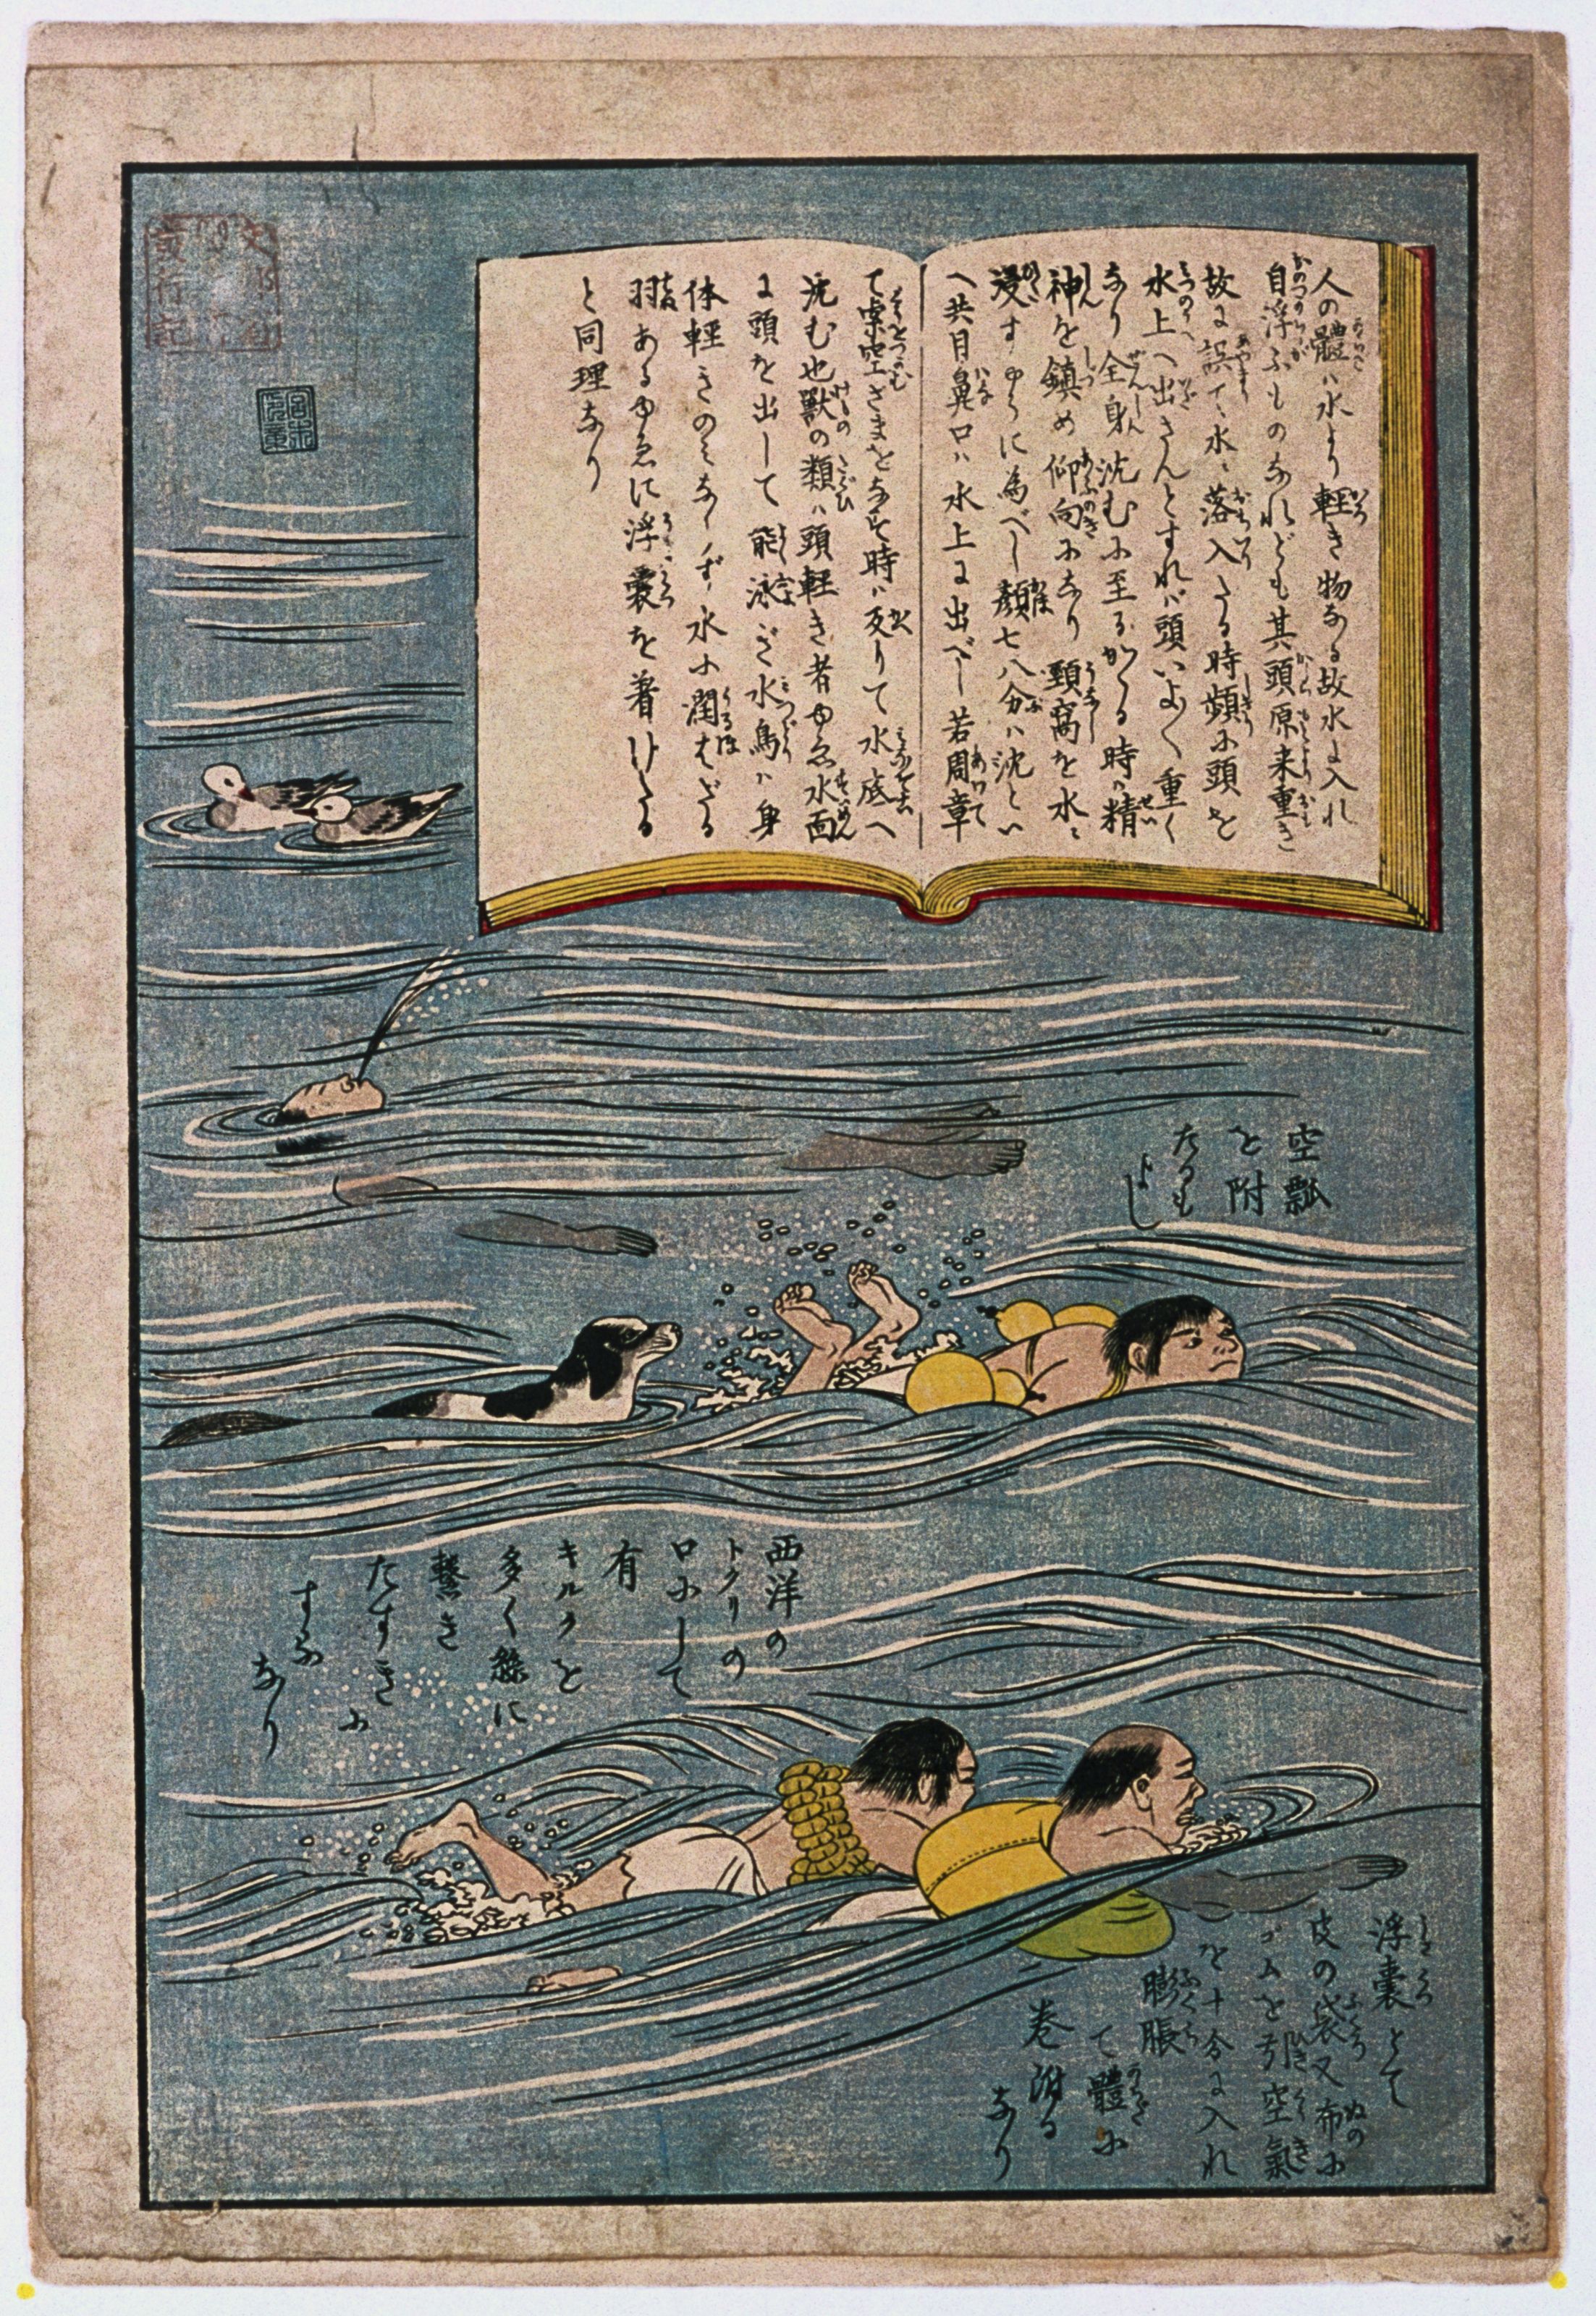 人の體ハ水より軽き物なる故水に入れ
自浮ふものなれども其頭原来重き
故に誤て水に落入たる時頻に頭を
水上へ出さんとすれバ頭いよ〱重く
なり全身沈むに至るかゝる時ハ精
神を鎮め仰向になり頸窩を水に
浸すやうに為べし顔七八分ハ沈とい
へ共目鼻口ハ水上に出べし若周章
て虚空ざまをなす時ハ反りて水底へ
沈む也獣の類ハ頭軽き者ゆゑ水面
に頭を出して能泳ぎ水鳥ハ身
体軽きのみならず水に潤はざる
羽あるゆゑに浮嚢を着けたる
と同理なり
空瓢
を附
たるも
よし
西洋の
トクリの
口にして
有
キルクを
多く緜に
繋き
たすきに
するなり
浮嚢とて
皮の袋又布に
ゴムを引空氣
を十分に入れ
膨脹
て體に
巻附る
なり